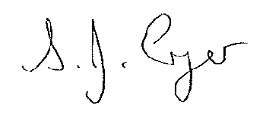 S. J. Cryer